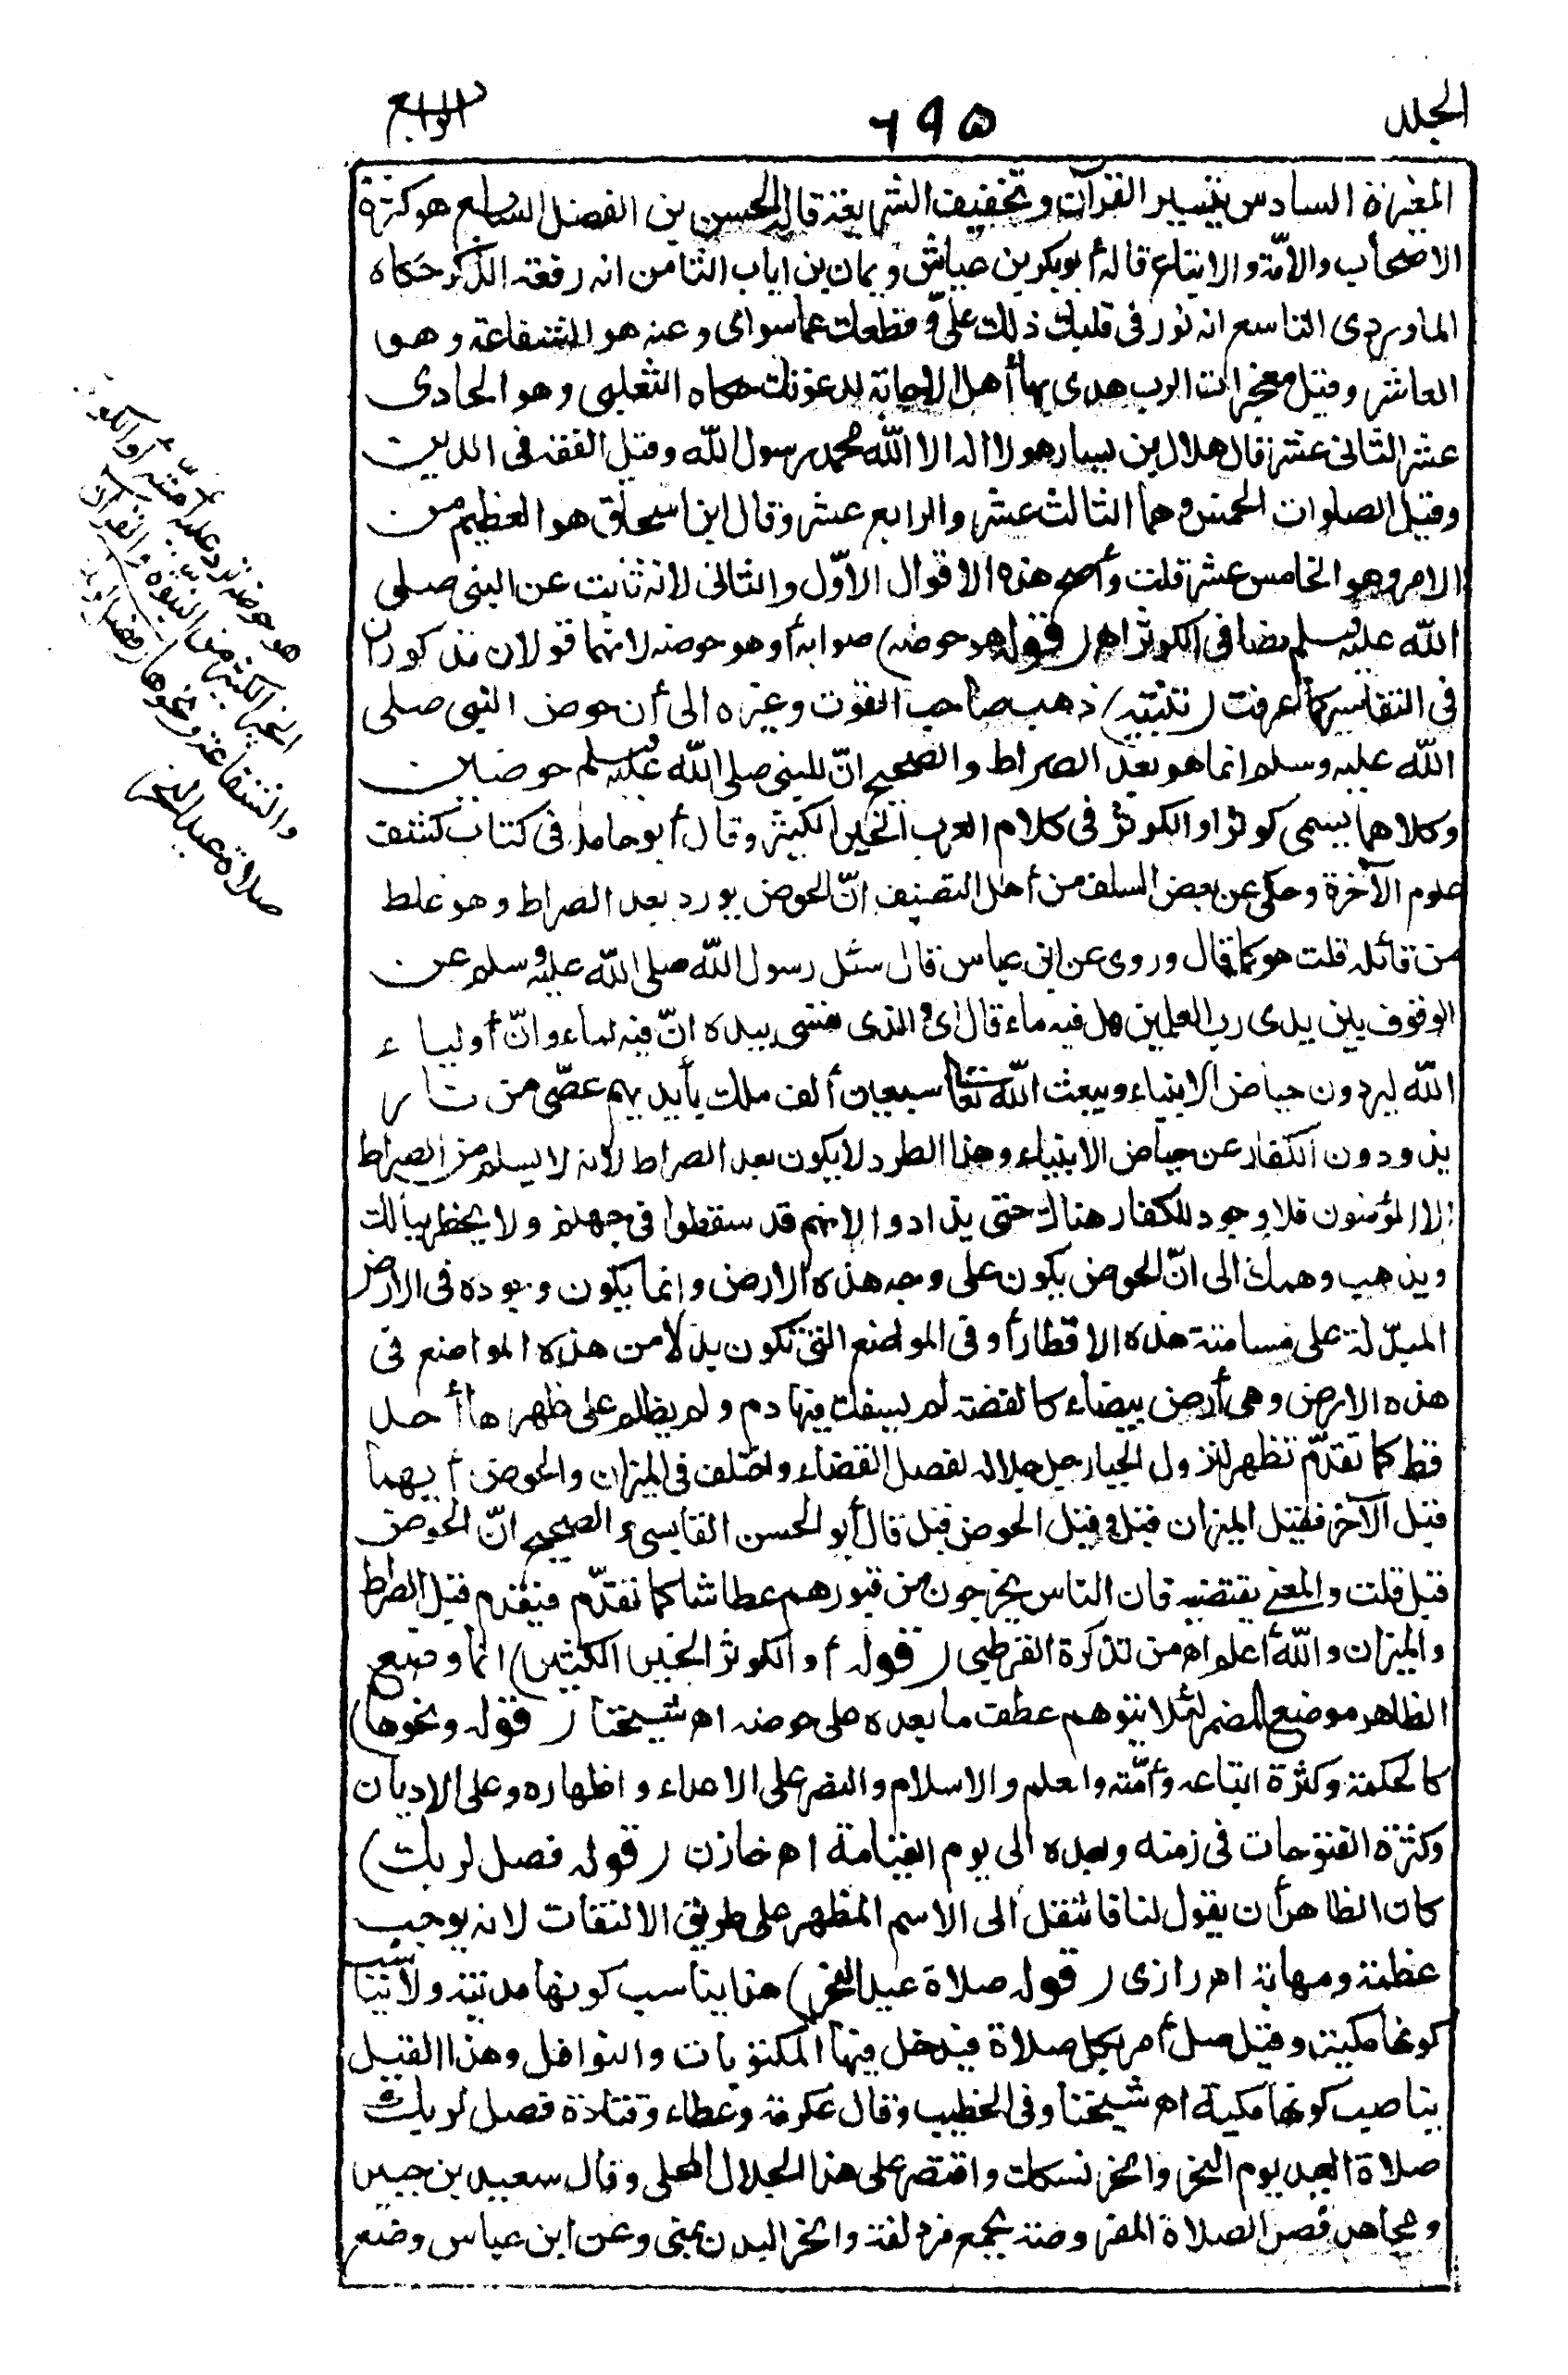 الجلد ٥٩٦ الرابع
المغيرة السادس تيسير القرآن وتخفيف الشريعة قاله الحسن بن الفضل السابع هو كثرة
الاصحاب والأمّة والاتباع قاله أبو بكر بن عياش ويمان بن رياب الثامن انه رفعة الذكر حكاه
الماوردى التاسع انه نور فى قلبك ذلك علىّ وقطعك عما سواى وعنه هو الشفاعة وهو
العاشر وقيل معجزات الرب هدى بها أهل الاجابة لدعوتك حكاه الثعلبى وهو الحادى
عشر الثانى عشر قال هلال بن يسار هو لا اله الا الله محمد رسول الله وقيل الفقه فى الدين
وقيل الصلوات الخمس وهما الثالث عشر والرابع عشر وقال ابن اسحاق هو العظيم من
الامر وهو الخامس عشر قلت وأصح هذه الاقوال الاوّل والثانى لانه ثابت عن النبى صلى
الله عليه وسلم نصا فى الكوثر اهـ (قوله هو حوضه) صوابه أو هو حوضه لانهما قولان مذكوران
فى التفاسير كما عرفت (تنبيه) ذهب صاحب القوت وغيره الى أن حوض النبى صلى
الله عليه وسلم انما هو بعد الصراط والصحيح انّ للنبى صلى الله عليه وسلم حوضين
وكلاهما يسمى كوثرا والكوثر فى كلام العرب الخير الكثير وقال أبو حامد فى كتاب كشف
علوم الآخرة وحكى عن بعض السلف من أهل التصنيف انّ الحوض يورد بعد الصراط وهو غلط
من قائله قلت هو كما قال وروى عن ابن عباس قال سئل رسول الله صلى الله عليه وسلم عن
الوقوف بين يدى رب العلمين هل فيه ماء قال اى والذى نفسى بيده انّ فيه لماء وانّ أولياء
الله ليردون حياض الانبياء ويبعث الله تعالى سبعين ألف ملك بأيديهم عصّى من نار
يذودون الكفار عن حياض الانبياء وهذا الطرد لا يكون بعد الصراط لانه لا يسلم من الصراط
الا المؤمنون فلا وجود للكفار هناك حتى يذادوا لانهم قد سقطوا فى جهنم ولا يخطر ببالك
ويذهب وهمك الى انّ الحوض يكون على وجه هذه الارض وانما يكون وجوده فى الارض
المبدّلة على مسامتة هذه الاقطار أو فى المواضع التى تكون بدلا من هذه المواضع فى
هذه الارض وهى أرض بيضاء كالفضة لم يسفك فيها دم ولم يظلم على ظهرها أحد
قط كما تقدّم تظهر لنزول الجبار جل جلاله لفصل القضاء واختلف فى الميزان والحوض أيهما
قبل الآخر فقيل الميزان قبل وقيل الحوض قبل قال أبو الحسن القابسى والصحيح انّ الحوض
قبل قلت والمعنى يقتضيه فان الناس يخرجون من قبورهم عطاشا كما تقدّم فيقدم قبل الصراط
والميزان والله أعلم اهـ من تذكرة القرطبى (قوله أو الكوثر الخير الكثير) انما وضع
الظاهر موضع المضمر لئلا يتوهم عطف ما بعده على حوضه اهـ شيخنا (قوله ونحوها)
كالحكمة وكثرة اتباعه وأمّته والعلم والاسلام والنصر على الاعداء واظهاره وعلى الاديان
وكثرة الفتوحات فى زمنه وبعده الى يوم القيامة اهـ خازن (قوله فصل لربك)
كان الظاهر أن يقول لنا فانتقل الى الاسم المظهر على طريق الالتفات لانه يوجب
عظمة ومهابة اهـ رازى (قوله صلاة عيد النحر) هذا يناسب كونها مدنية ولا يناسب
كونها مكية وقيل صل أمر بكل صلاة فيدخل فيها المكتوبات والنوافل وهذا القيل
يناصب كونها مكية اهـ شيخنا وفى الخطيب وقال عكرمة وعطاء وقتادة فصل لربك
صلاة العيد يوم النحر وانحر نسكك واقتصر على هذا الجلال المحلى وقال سعيد بن جبير
ومجاهد فصل الصلاة المفروضة بجمع مزدلفة وانحر البدن بمنى وعن ابن عباس وضع
هو حوضه ترد عليه أمّته أو الكوثر
الخير الكثير من النبوّة والقرآن
والشفاعة ونحوها
صلاة عيد النحر